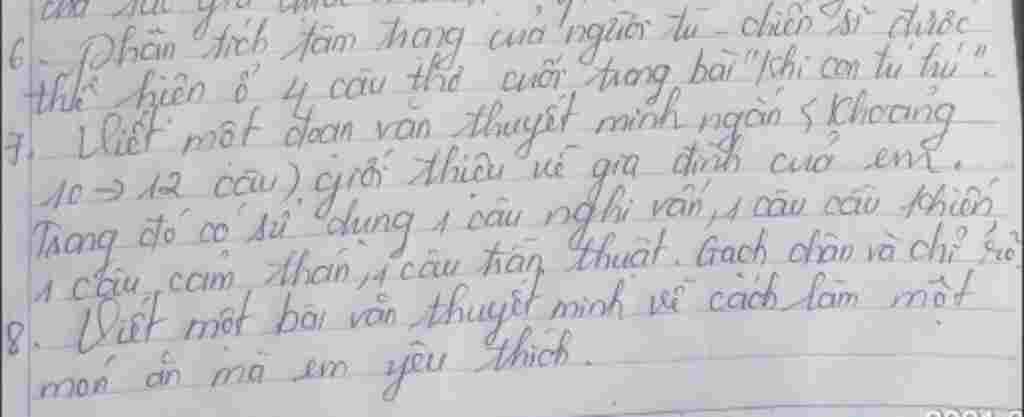 6. Phân tích tâm trạng của người tù - chiến sĩ được
thể hiện ở 4 câu thơ cuối trong bài "khi con tu hú".
7. Viết một đoạn văn thuyết minh ngắn (khoảng
10 → 12 câu) giới thiệu về gia đình của em.
Trong đó có sử dụng 1 câu nghi vấn, 1 câu cầu khiến
1 câu cảm thán, 1 câu trần thuật. Gạch chân và chỉ rõ.
8. Viết một bài văn thuyết minh về cách làm một
món ăn mà em yêu thích.